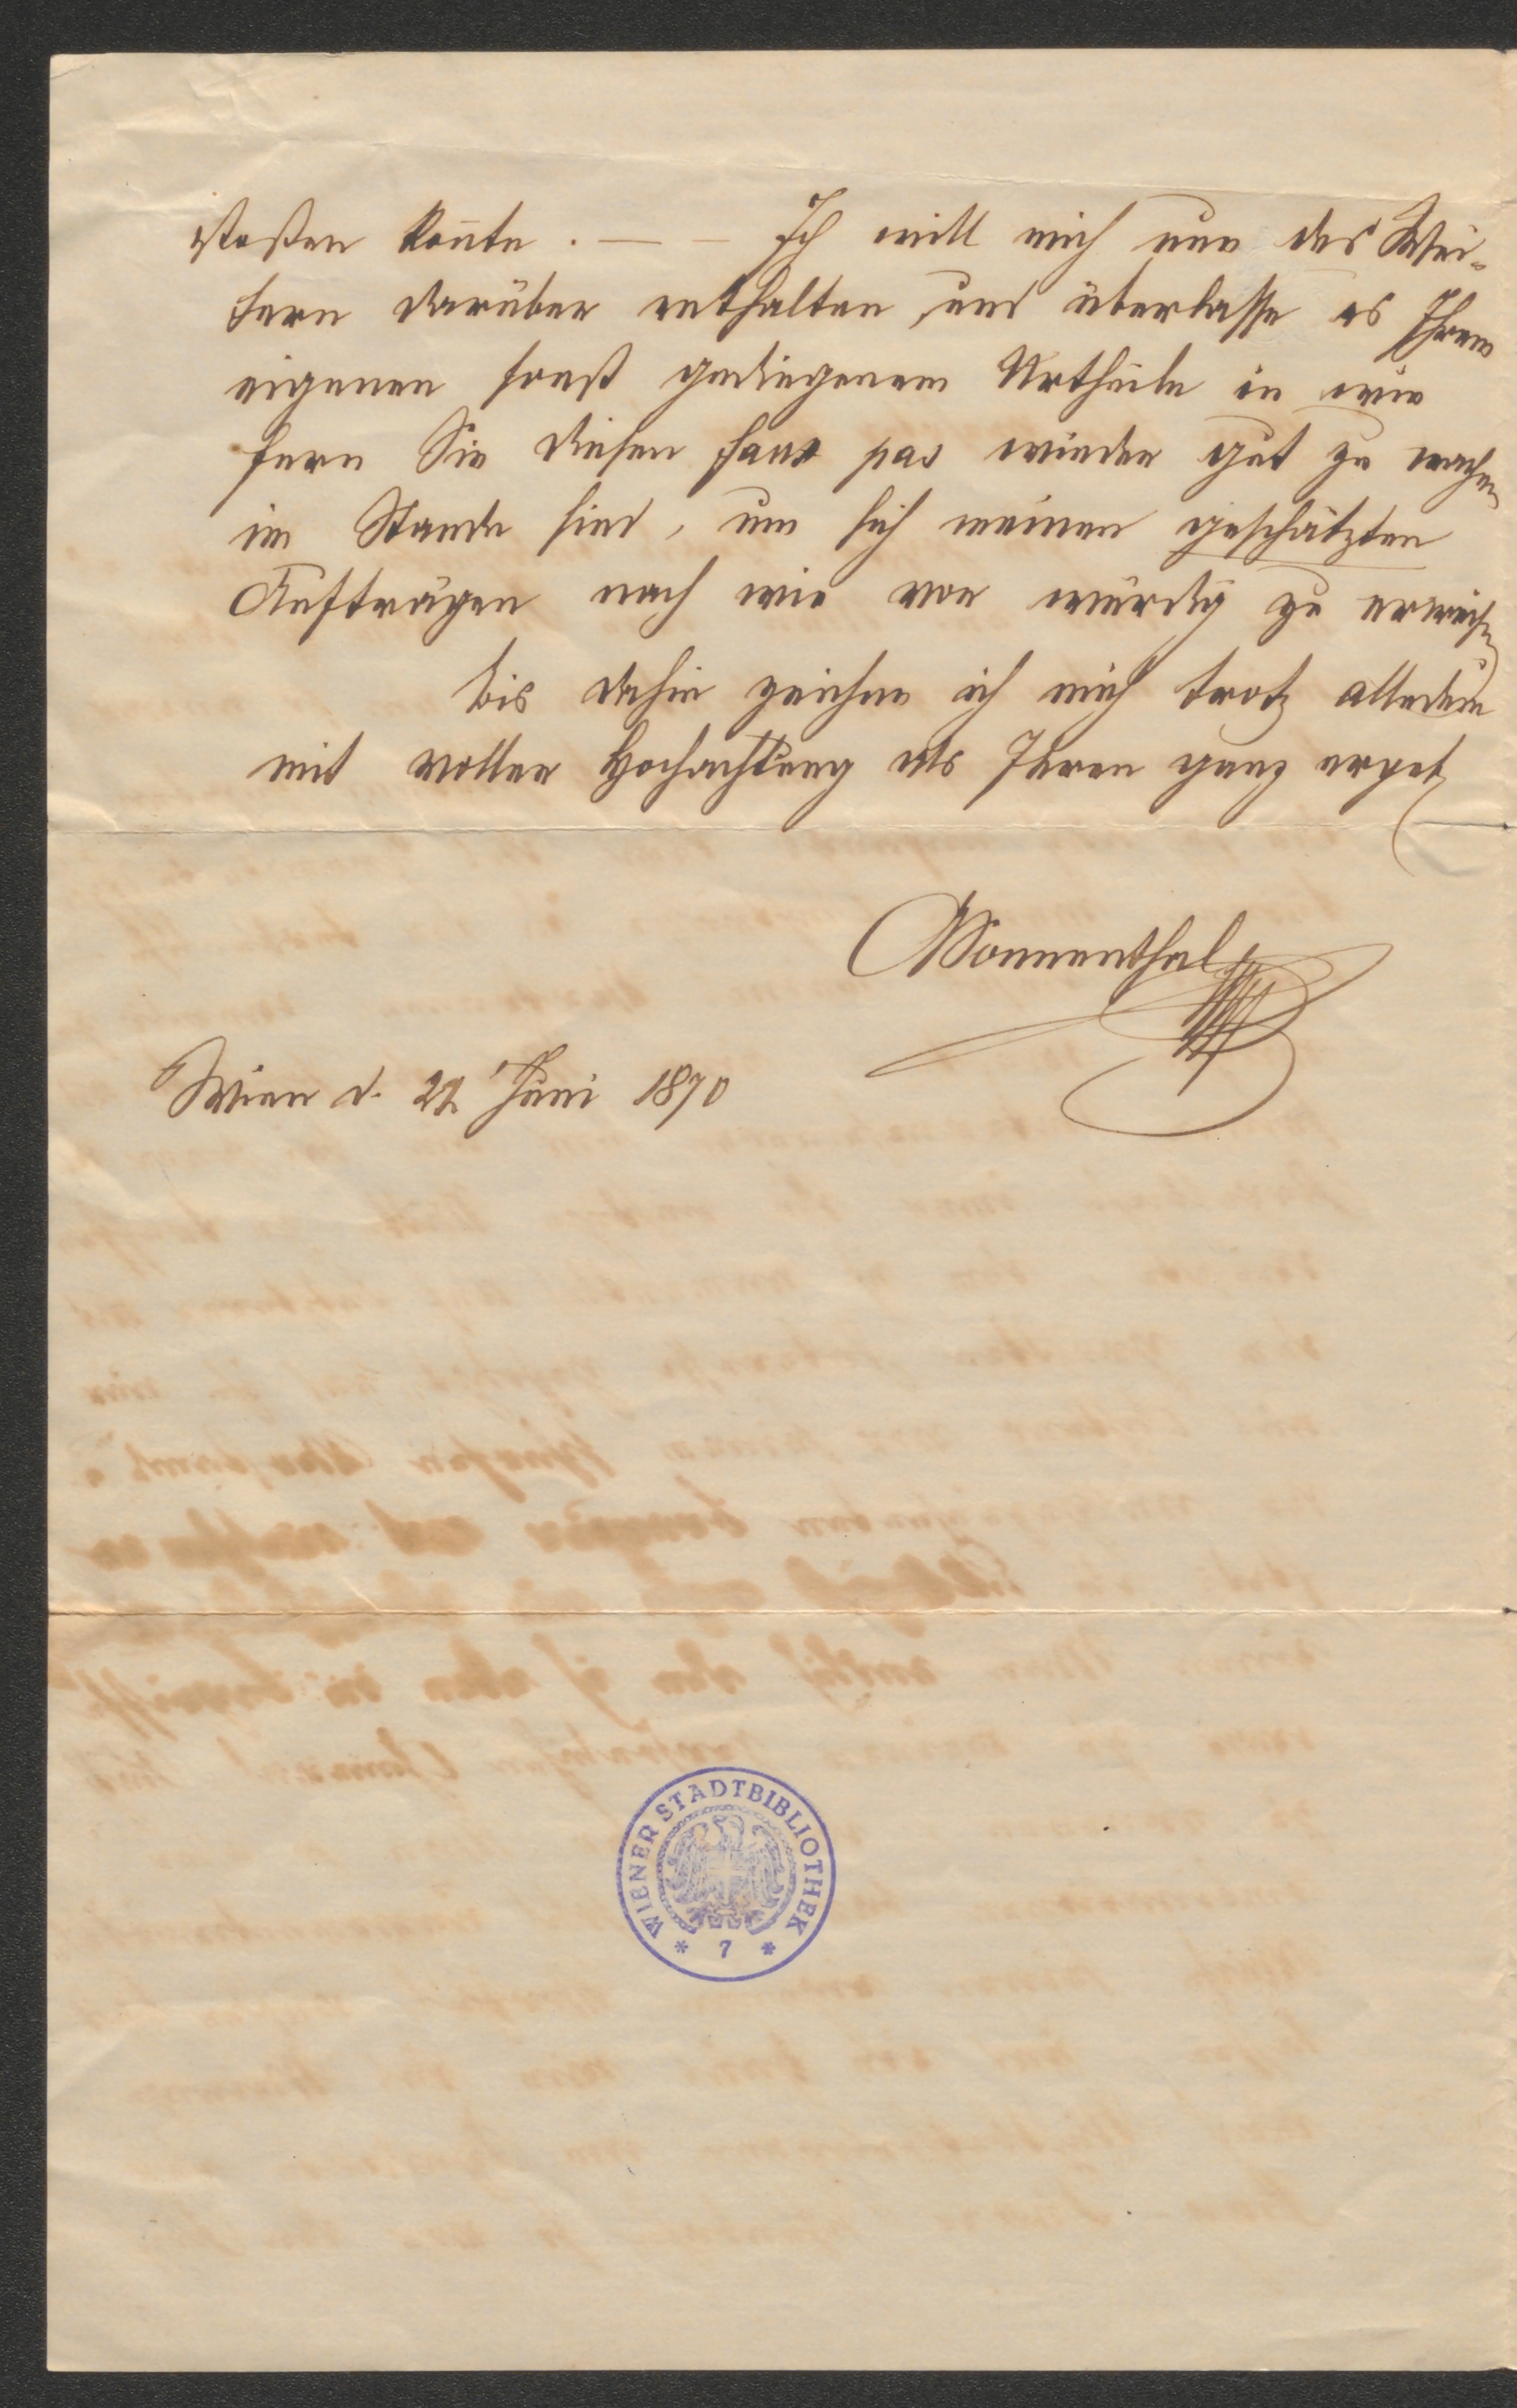 stoßen koñte. — — Ich will mich nun des Wei-
tern darüber enthalten, und überlasse es Ihrem
eigenen sonst gediegenem Urtheile in wie
fern Sie diesen faux pas wieder gut zu machen
im Stande sind, um sich meinen geschätzten
Aufträgen nach wie vor würdig zu erweisen
bis dahin zeichne ich mich trotz alledem
mit voller Hochachtung als Ihren ganz ergeb
ASonnenthal
Wien d. Juni 1870
WIENER STADTBIBLIOTHEK
* 7 *